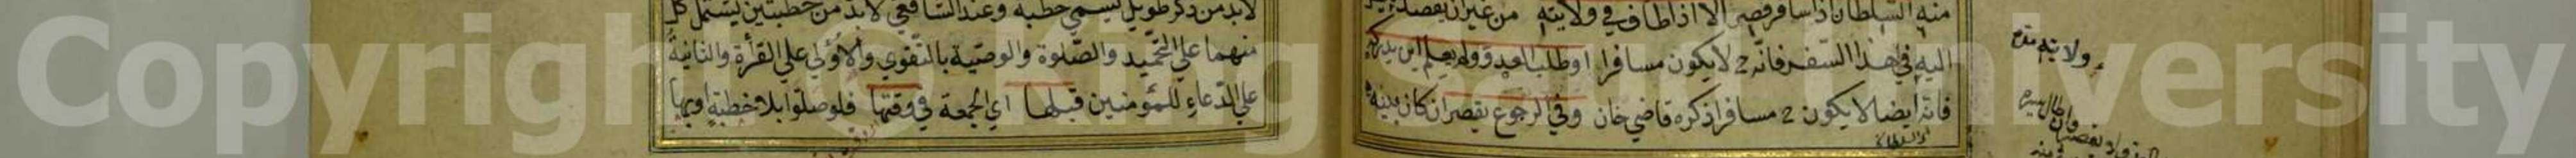 منه السلطان اذا سافر قصر الا اذا طاف في ولايته من غير ان يقصد
اليه في هذا السفر فانه ح لا يكون مسافرا او طلب العدو ولم يعلم اين يدركه
فانه ايضا لا يكون ح مسافرا ذكره قاضي خان وفي الرجوع يقصر ان كان بينه
ولايته
لا بد من ذكر طويل يسمى خطبة وعند الشافعي لا بد من خطبتين يشتمل كل
منهما على التحميد والصلوة والوصية بالتقوي والاولى على القرأة والثانية
على الدعاء للمؤمنين قبلها اي الجمعة في وقتها فلو صلوا بلا خطبة او بها
Copyright © King Saud University